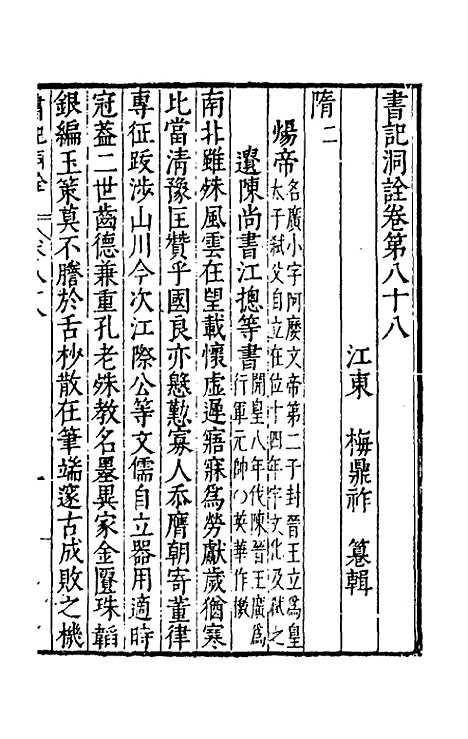 書記洞詮卷第八十八
江東　梅鼎祚　纂輯
隋二
煬帝名廣小字阿𡡉文帝第二子封晉王立為皇
太子弑父自立在位十四年宇文化及弑之
遺陳尚書江摠等書開皇八年伐陳晉王廣為
行軍元帥
南北雖殊風雲在望載懷虛遲寤寐為勞獻歲猶寒
比當清豫匡贊乎國良亦慇懃寡人忝膺朝寄董律
專征跋涉山川今次江際公等文儒自立器用適時
冠蓋二世齒德兼重孔老殊教名墨異家金匱珠韜
銀編玉策莫不謄於舌杪散在筆端邃古成敗之機